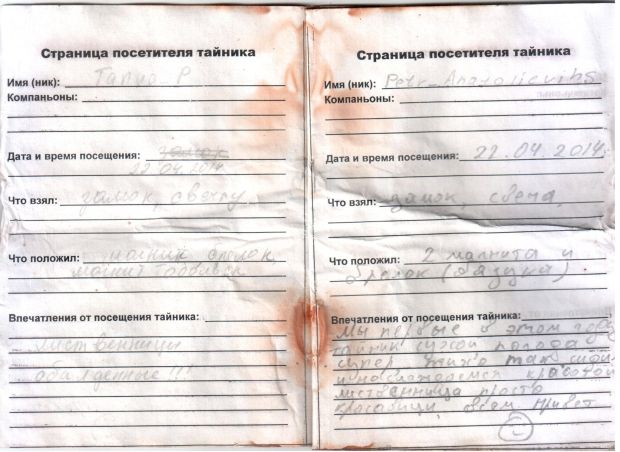 Страница посетителя тайника
Имя (ник): Тапио Р
Компаньоны:
Дата и время посещения: замок
22 04 2014
Что взял: замок, свечу
Что положил: магнит, брелок,
магнит
Впечатления от посещения тайника:
лиственницы
обалденные!!!
Страница посетителя тайника
Имя (ник): Petr-Anatolievihs
Компаньоны:
Дата и время посещения: 22.04.2014
Что взял: замок, свеча,
Что положил: 2 магнита и
брелок (
Впечатления от посещения тайника:
Мы первые в этом году
тайник сухой погода
супер тихо так сиди
и наслаждаемся красотой
лиственница просто
красавицы, всем привет